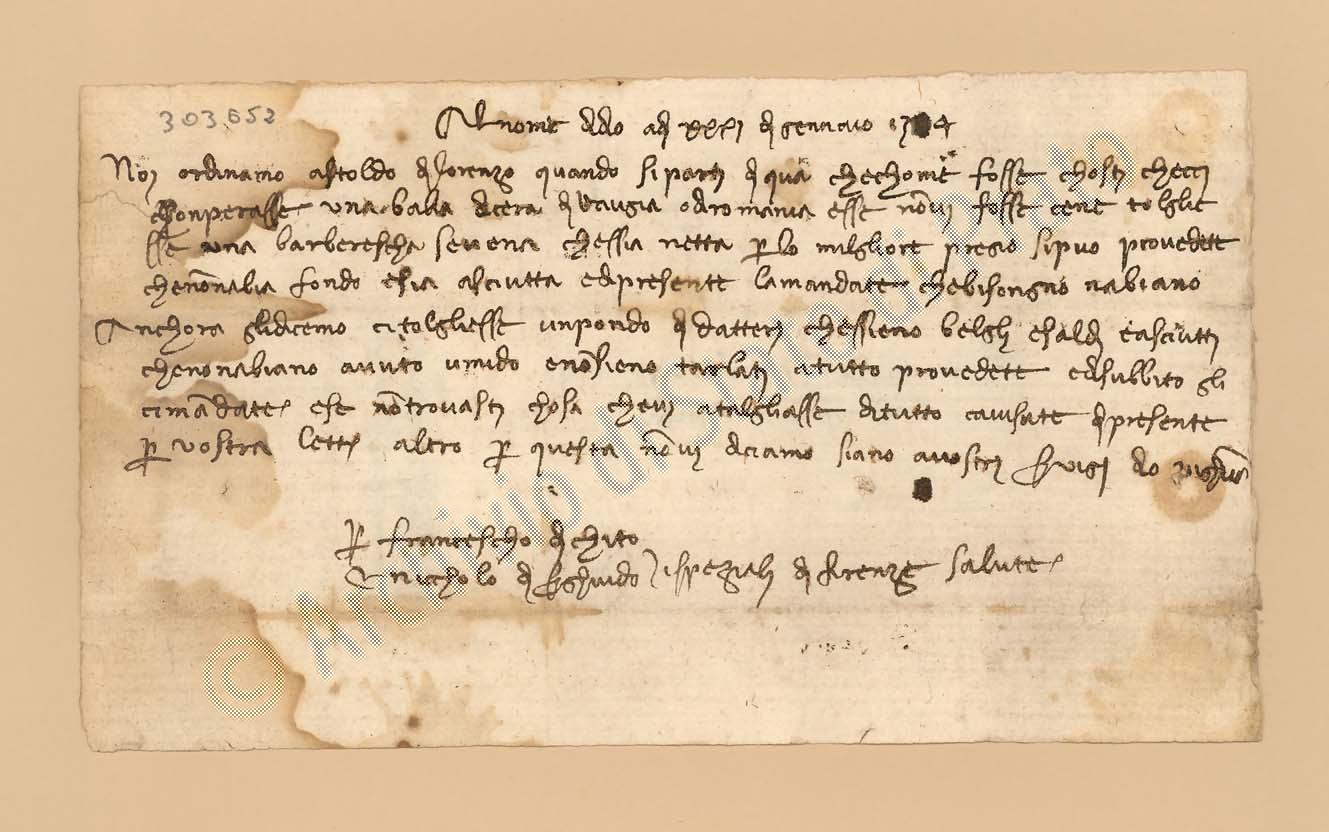 303652
Al nome di dio adi xxxi di gennaio 1384
Noi ordinamo astoldo di lorenzo quando si parti di qua chechome fosse chosti checci
chonperasse una balla dicera di o di romania esse novi fosse cene toglie
sse una barberescha se vena chessia netta per lo milgliore pregio si puo provedete
chenonabia fondo e sia asciutta e dipresente la mandate chebisongno nabiano
Anchora glidicemo citolgliesse unpondo di datteri chessieno belgli e saldi easciutti
chenonabiano avuto umido enonsieno tarlati atutto provedete edisubbito gli
cimandate e se nontrovasti chosa chevi atalgliasse ditutto cavisate dipresente
per vostra lettera altro per questa nonvi diciamo siano avostri servigi dio vighuardi
per francescho di chito
e niccholo di ghuido ispeziali di firenze salute
© Archivio di Stato di Prato